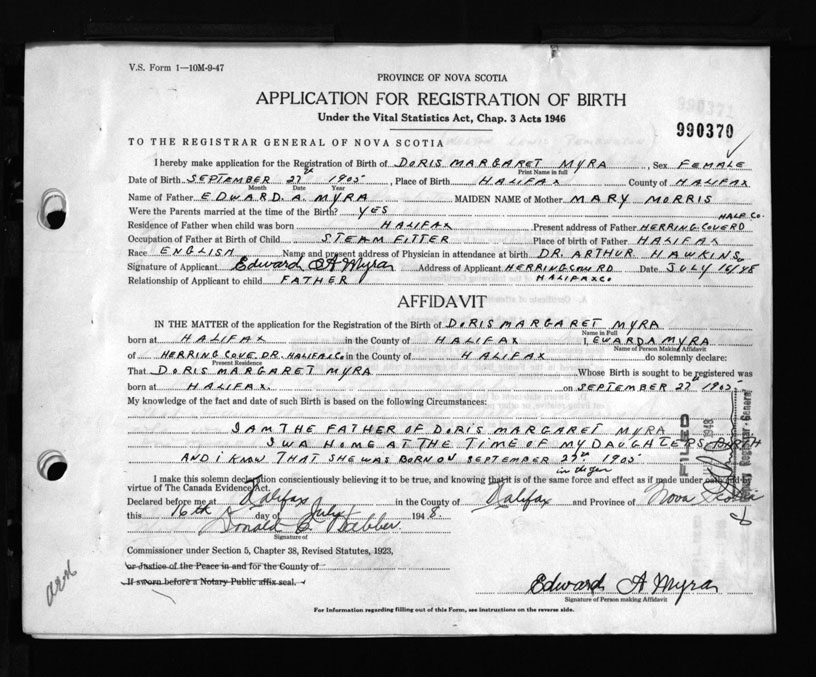 V.S. Form 1—10M-9-47
PROVINCE OF NOVA SCOTIA
APPLICATION FOR REGISTRATION OF BIRTH
Under the Vital Statistics Act, Chap. 3 Acts 1946
990370
TO THE REGISTRAR GENERAL OF NOVA SCOTIA
I hereby make application for the Registration of Birth of DORIS MARGARET MYRA, Sex FEMALE
Print Name in full
Date of Birth SEPTEMBER 27th 1905, Place of Birth HALIFAX County of HALIFAX
Month Date Year
Name of Father EDWARD. A. MYRA MAIDEN NAME of Mother MARY MORRIS
Were the Parents married at the time of the Birth? YES
HALF CO.
Residence of Father when child was born HALIFAX Present address of Father HERRING COVE RD
Occupation of Father at Birth of Child STEAM FITTER Place of birth of Father HALIFAX
Race ENGLISH Name and present address of Physician in attendance at birth DR. ARTHUR HAWKINS
Signature of Applicant Edward A Myra Address of Applicant HERRING COV RD Date JULY 16/48
Relationship of Applicant to child FATHER HALIFAX CO
AFFIDAVIT
IN THE MATTER of the application for the Registration of the Birth of DORIS MARGARET MYRA
Name in Full
born at HALIFAX in the County of HALIFAX I, EWARD A MYRA
Name of Person Making Affidavit
of HERRING COVE DR. HALIFAX Co in the County of HALIFAX do solemnly declare:
Present Residence
That DORIS MARGARET MYRA Whose Birth is sought to be registered was
born at HALIFAX. on SEPTEMBER 27th 1905
My knowledge of the fact and date of such Birth is based on the following Circumstances:
I AM THE FATHER OF DORIS MARGARET MYRA
I WA HOME AT THE TIME OF MY DAUGHTERS BIRTH
AND I KNOW THAT SHE WAS BORN ON SEPTEMBER 27th 1905
I make this solemn declaration conscientiously believing it to be true, and knowing that it is of the same force and effect as if made under oath by
virtue of The Canada Evidence Act.
Declared before me at Halifax in the County of Halifax and Province of Nova Scotia
this 16th day of July 1948.
Signature of
Commissioner under Section 5, Chapter 38, Revised Statutes, 1923,
or Justice of the Peace in and for the County of
If sworn before a Notary Public affix seal.
Edward A Myra
Signature of Person making Affidavit
For Information regarding filling out of this Form, see instructions on the reverse side.
FILED
1948
Deputy Registrar-General